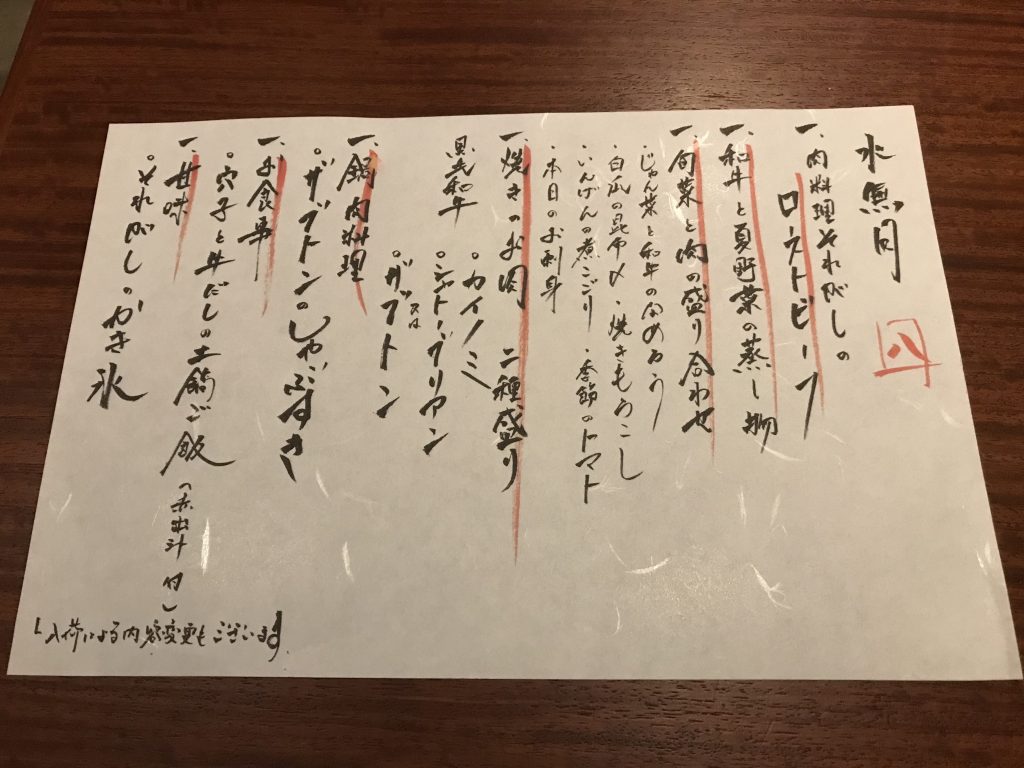 水無月
八
一、肉料理それがしの
ローストビーフ
一、和牛と夏野菜の蒸し物
一、旬菜と肉の盛り合わせ
・じゅん菜と和牛の
・白瓜の昆布〆 ・焼きもろこし
・いんげんの煮こごり ・季節のトマト
・本日のお刺身
一、焼きのお肉 二種盛り
黒毛和牛 ・カイノミ
・シャトーブリアン
又は
・ザブトン
一、鍋肉料理
・ザブトンのしゃぶすき
一、お食事
・穴子と牛だしの土鍋ご飯（赤出汁付）
一、甘味
・それがしのかき氷
入荷による内容変更もございます